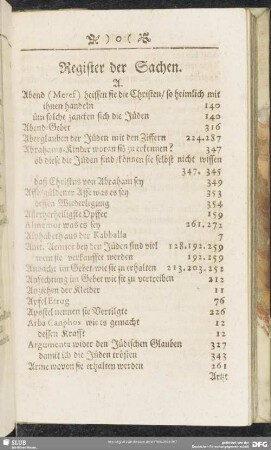 ) o (
Register der Sachen.
A.
Abend (Meref) heissen sie die Christen / so heimlich mit
ihnen handeln 140
üm solche zancken sich die Jüden 140
Abend-Gebet 316
Aberglauben der Jüden mit den Ziffern 224.287
Abrahams-Kinder woran sie zu erkennen? 347
ob diese die Jüden sind / können sie selbst nicht wissen
347. 345
daß Christus von Abraham sey 349
Affe was es sey 353
dessen Wiederlegung 354
Allerheiligste Opffer 159
was es sey 261.272
der Kabbalä 7
Amt, Aemter bey den Jüden sind viel 128.192.259
wem sie verkaufft werden 192.259
Andacht im Gebet wie sie zu erhalten 213.203.252
Anfechtung im Gebet wie sie zu vertreiben 212
Anziehen der Kleider 11
Apffel Etrog 76
Apostel nennen sie Vertilgte 226
Arba Canphos wie es gemacht 12
dessen Krafft 12
Argumenta wider den Jüdischen Glauben 327
damit ich die Jüden trösten 343
Arme wovon sie erhalten werden 161
Artzt
SLUB